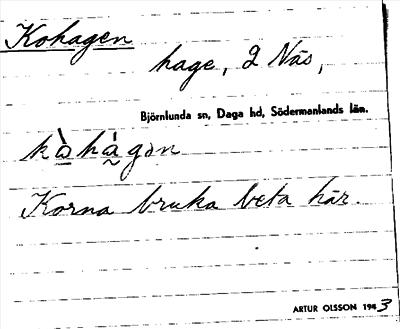 Kohagen
hage, 2 Näs,
Björnlunda sn, Daga hd, Södermanlands län.
kò̲hà̰gən
Korna bruka beta här.
ARTUR OLSSON 1943